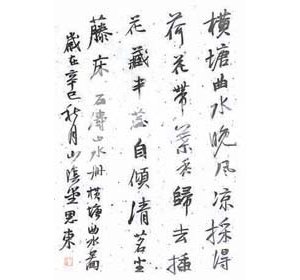 橫塘曲水晚风凉採得
荷花帶葉香歸去插
花藏半蕊自傾清茗坐
藤床 石濤山水册 橫塘曲水篇
歲在辛巳秋月山陰思東